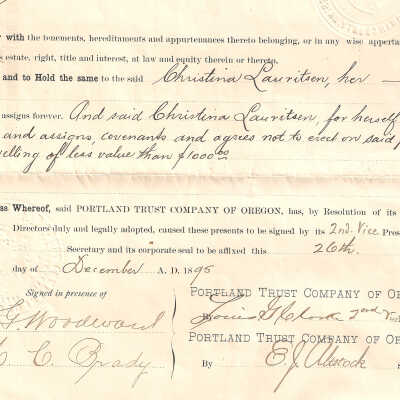 r with the tenements, hereditaments and appurtenances thereto belonging, or in any wise apperta
s estate, right, title and interest, at law and equity therein or thereto.
and to Hold the same to the said Christina Lauritsen, her
assigns forever. And said Christina Lauritsen, for herself
and assigns, covenants and agrees not to erect on said p
elling of less value than $1000.00
ss Whereof, said PORTLAND TRUST COMPANY OF OREGON, has, by Resolution of its
Directors duly and legally adopted, caused these presents to be signed by its 2nd. Vice Pres
Secretary and its corporate seal to be affixed this 26th.
day of December A. D. 1895
Signed in presence of
PORTLAND TRUST COMPANY OF OR
G. Woodward
Louis G. Clark 2nd Vi
PORTLAND TRUST COMPANY OF O
C. Brady
By E. J.